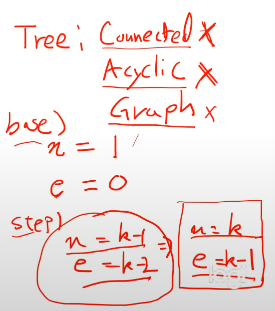 Tree: Connected X
Acyclic X
Graph x
base)
n = 1
e = 0
step)
n = k-1 => n = k
e = k-2 e = k-1